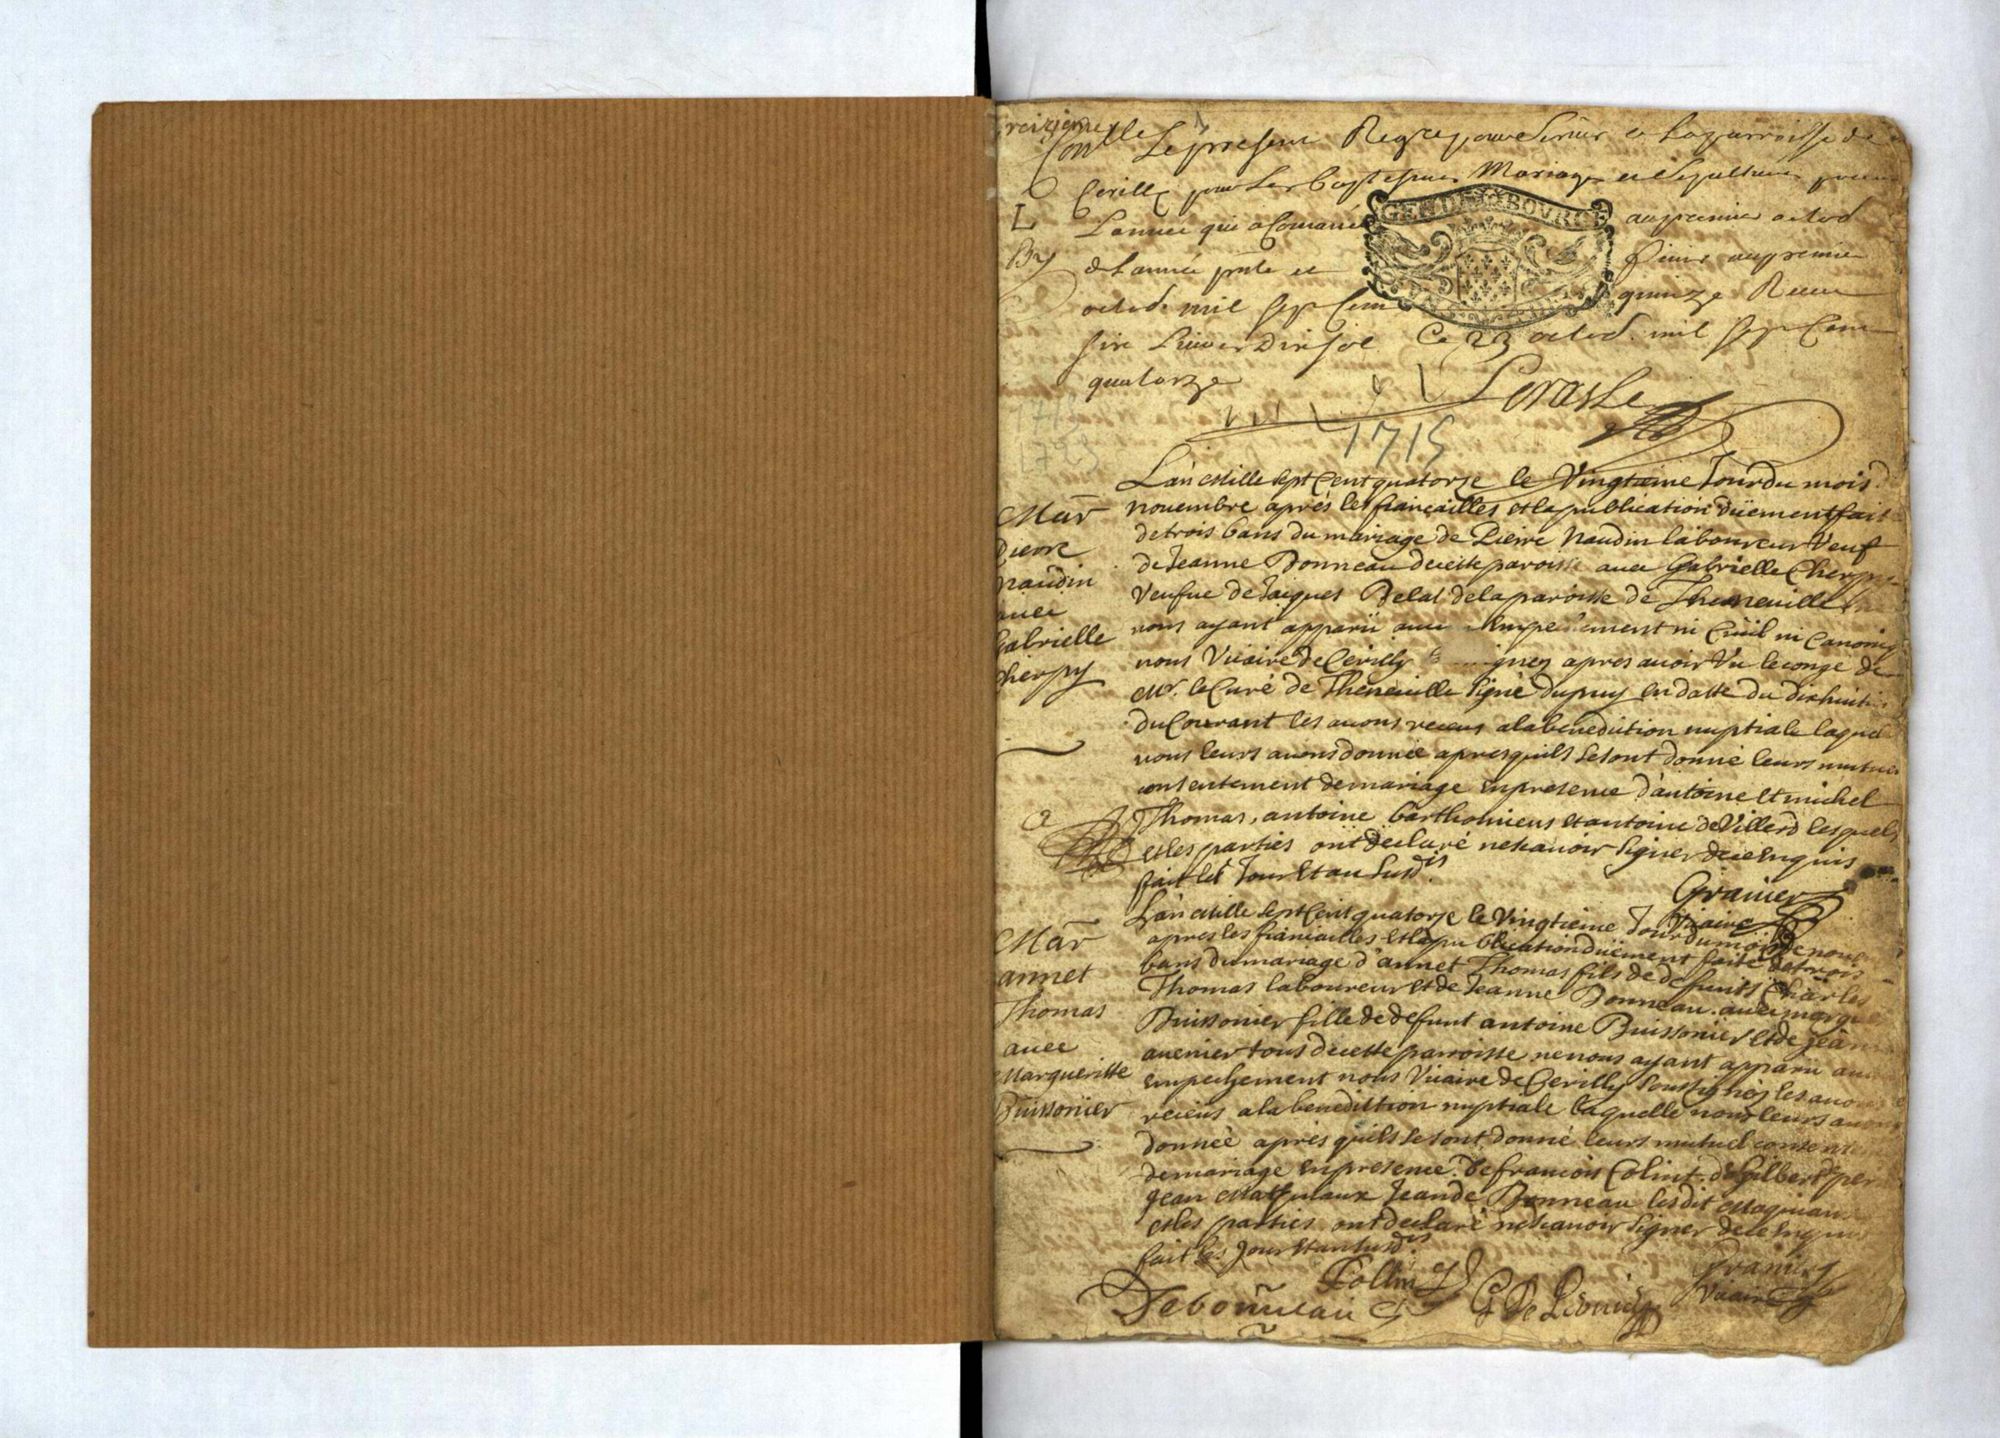 Le present Reg pour servir a la parroisse de
Cerilly pour les Baptesmes Mariages et Sepultures
L'année qui a Comancé au premier octob
GEN DE BOURG
L
By
de l'année pnte et finir au premier
octob mil sept Cent quinze
Ce 23 octob mil sept Cent
quatorze
1715
1793
L'an Mille sept Cent quatorze le Vingtieme Jour du mois d
novembre aprés les fiançailles et la publication düement fait
de trois bans du mariage de Pierre Naudin laboureur Veuf
de Jeanne Bonneau de cette paroisse avec Gabrielle Cherpy
Veufve de Jaiques Belat de la paroisse de Theneuille
nous ayant apparü aucun Empechement ni Ciüil ni Canoniq
nous Vicaire de Cerilly signez apres avoir Vu le congé de
Mr. le Curé de Theneuille signé Dupuy en datte du dixhuiti
du Courant les avons receus a la benediction nuptiale laquel
nous leurs avons donnée apres quils se sont donné leurs mutuel
consentement de mariage en presence d'antoine et michel
Thomas, antoine barthomieus et antoine de Villerd lesquels
et les parties ont declaré ne scavoir signer de ce Enquis
fait les Jour et an susdis
Mar
Pierre
naudin
avec
Gabrielle
Cherpy
Granier
Vicaire
L'an Mille sept Cent quatorze le Vingtieme Jour du mois de nove
apres les fiancailles et la publication düement faite de trois
bans du mariage d'annet Thomas fils de defunts Charles
Thomas laboureur et de Jeanne Bonneau avec marque
Buissonier fille de defunt antoine Buissonier et de Jeanne
auenier tous de cette parroisse ne nous ayant apparü aucun
empechement nous Vicaire de Cerilly soussignés les avons
receus a la benediction nuptiale laquelle nous leurs avons
donnée aprés quils se sont donné leurs mutuel consente
de mariage en presence de francois Colint, de Gilbert per
Jean Jean de Bonneau lesdit
et les parties ont declaré ne scavoir signer de ce Enquis
fait les Jour et an susdis
Mar
annet
Thomas
avec
Margueritte
Buissonier
Collin
Granier
Vicaire
Debonneau